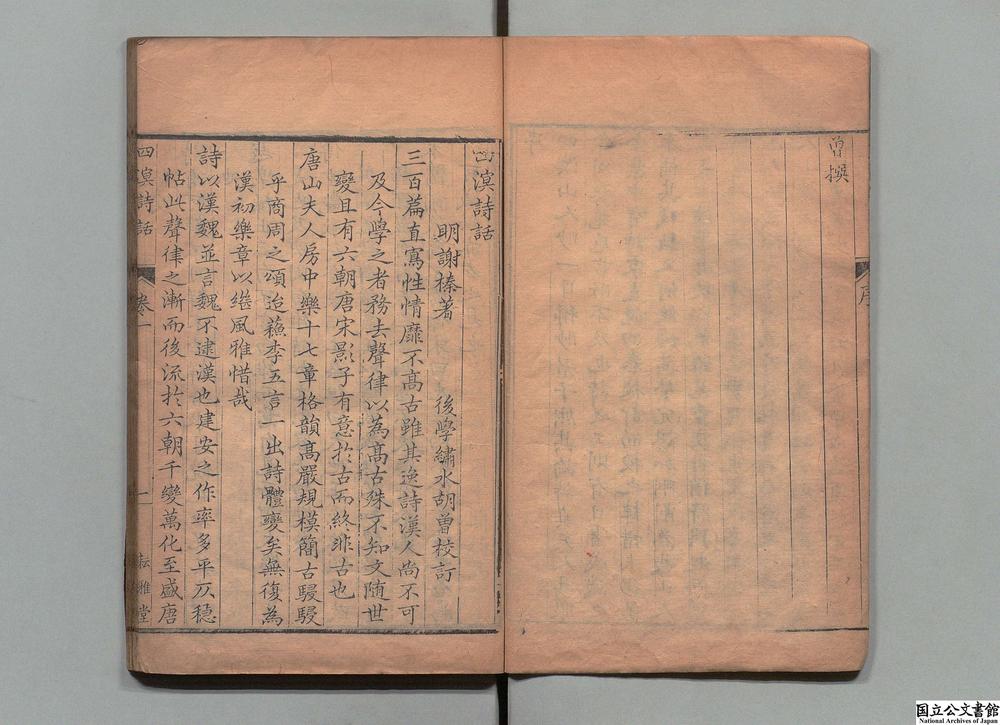 曾撰
序
四溟詩話
明謝榛著 後學繡水胡曾校訂
三百篇直寫性情靡不高古雖其逸詩漢人尚不可
及今學之者務去聲律以為高古殊不知文隨世
變且有六朝唐宋影子有意於古而終非古也
唐山夫人房中樂十七章格韻高嚴規模簡古駸駸
乎商周之頌迨蘇李五言一出詩體變矣無復為
漢初樂章以繼風雅惜哉
詩以漢魏並言魏不逮漢也建安之作率多平仄穩
帖此聲律之漸而後流於六朝千變萬化至盛唐
四溟詩話 卷一 一 耘雅堂
国立公文書館
National Archives of Japan